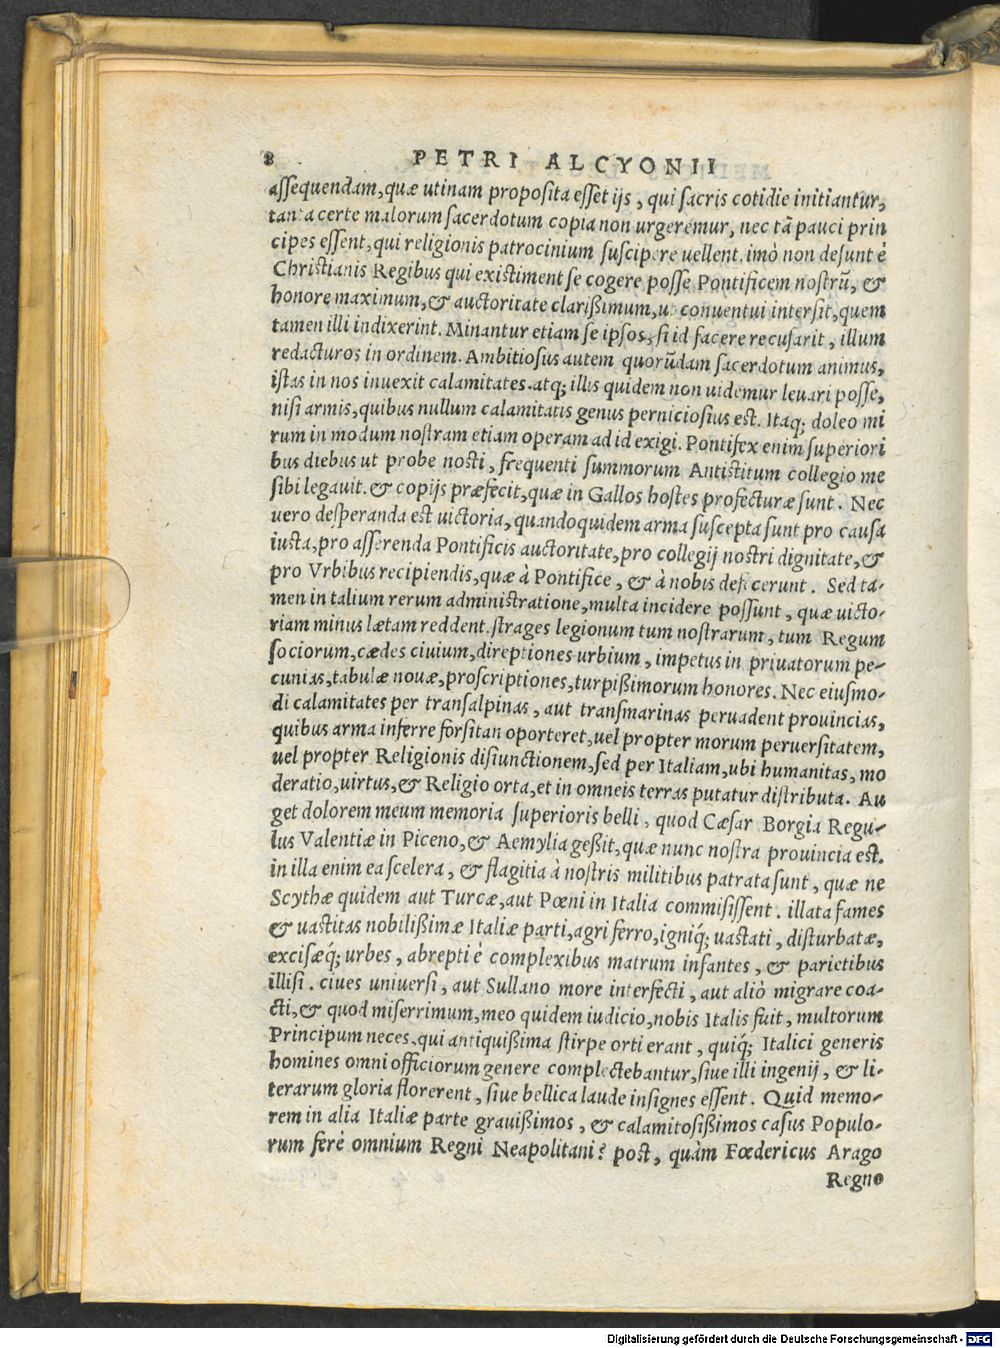 8 PETRI ALCYONII
assequendam, quæ utinam proposita esset ijs, qui sacris cotidie initiantur,
tanta certe malorum sacerdotum copia non urgeremur, nec tā pauci prin
cipes essent, qui religionis patrocinium suscipere uellent. imò non desunt è
Christianis Regibus qui existiment se cogere posse Pontificem nostrū, &
honore maximum, & auctoritate clarißimum, ut conuentui intersit, quem
tamen illi indixerint. Minantur etiam se ipsos, si id facere recusarit, illum
redacturos in ordinem. Ambitiosus autem quorūdam sacerdotum animus,
istas in nos inuexit calamitates. atq; illis quidem non uidemur leuari posse,
nisi armis, quibus nullum calamitatis genus perniciosius est. Itaq; doleo mi
rum in modum nostram etiam operam ad id exigi. Pontifex enim superiori
bus diebus ut probe nosti, frequenti summorum Antistitum collegio me
sibi legauit. & copijs præfecit, quæ in Gallos hostes profecturæ sunt. Nec
uero desperanda est uictoria, quandoquidem arma suscepta sunt pro causa
iusta, pro asserenda Pontificis auctoritate, pro collegij nostri dignitate, &
pro Vrbibus recipiendis, quæ à Pontifice, & à nobis defecerunt. Sed ta-
men in talium rerum administratione, multa incidere possunt, quæ uicto-
riam minus lætam reddent. strages legionum tum nostrarum, tum Regum
sociorum, cædes ciuium, direptiones urbium, impetus in priuatorum pe-
cunias, tabulæ nouæ, proscriptiones, turpißimorum honores. Nec eiusmo-
di calamitates per transalpinas, aut transmarinas peruadent prouincias,
quibus arma inferre forsitan oporteret, uel propter morum peruersitatem,
uel propter Religionis disiunctionem, sed per Italiam, ubi humanitas, mo
deratio, uirtus, & Religio orta, et in omneis terras putatur distributa. Au
get dolorem meum memoria superioris belli, quod Cæsar Borgia Regu-
lus Valentiæ in Piceno, & Aemylia geßit, quæ nunc nostra prouincia est.
in illa enim ea scelera, & flagitia à nostris militibus patrata sunt, quæ ne
Scythæ quidem aut Turcæ, aut Pœni in Italia commisissent. illata fames
& uastitas nobilißimæ Italiæ parti, agri ferro, igniq́; uastati, disturbatæ,
excisæq́; urbes, abrepti è complexibus matrum infantes, & parietibus
illisi. ciues uniuersi, aut Sullano more interfecti, aut aliò migrare coa-
cti, & quod miserrimum, meo quidem iudicio, nobis Italis fuit, multorum
Principum neces, qui antiquißima stirpe orti erant, quiq́; Italici generis
homines omni officiorum genere complectebantur, siue illi ingenij, & li-
terarum gloria florerent, siue bellica laude insignes essent. Quid memo-
rem in alia Italiæ parte grauißimos, & calamitosißimos casus Populo-
rum ferè omnium Regni Neapolitani? post, quàm Fœdericus Arago
Regno
Digitalisierung gefördert durch die Deutsche Forschungsgemeinschaft - DFG